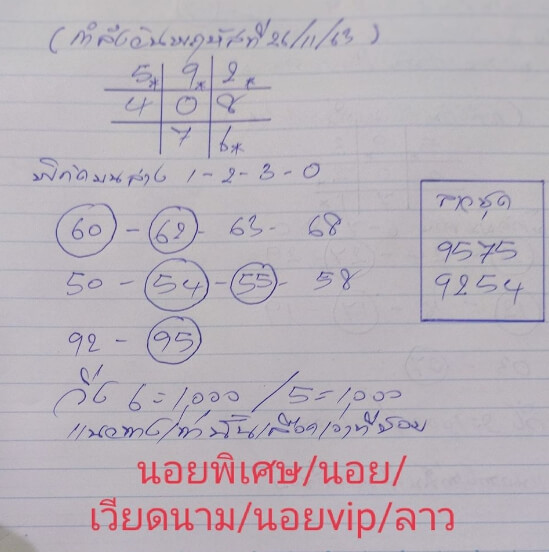 (กำลังวันพฤหัสที่ 26/11/63)
5* 9* 2*
4 0 8
7 6*
พิกัดบนล่าง 1-2-3-0
60 - 62 - 63 - 68
50 - 54 - 55 - 58
92 - 95
รถชุด
9575
9254
วิ่ง 6=1,000 / 5=1,000
แนวทาง/เท่านั้น
นอยพิเศษ/นอย/
เวียดนาม/นอยvip/ลาว